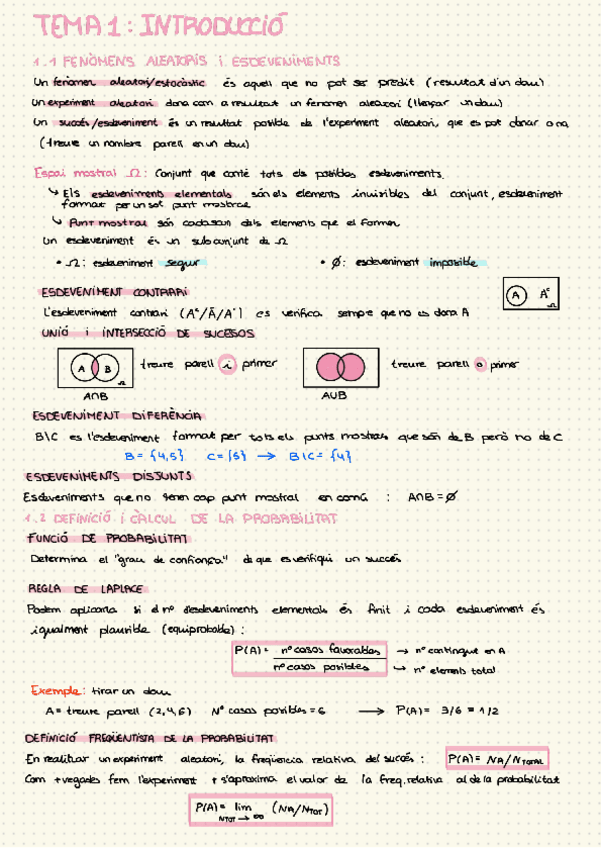 TEMA 1: INTRODUCCIÓ
1.1 FENÒMENS ALEATORIS i ESDEVENIMENTS
Un fenòmen aleatori/estocàstic és aquell que no pot ser predit (resultat d'un dau)
Un experiment aleatori dona com a resultat un fenomen aleatori (llençar un dau)
Un succés/esdeveniment és un resultat possible de l'experiment aleatori, que es pot donar o no
(treure un nombre parell en un dau)
Espai mostral Ω: Conjunt que conté tots els possibles esdeveniments.
↳ Els esdeveniments elementals són els elements invisibles del conjunt, esdeveniment
format per un sol punt mostral
↳ Punt mostral són cadascun dels elements que el formen
Un esdeveniment és un subconjunt de Ω
• Ω: esdeveniment segur • ∅: esdeveniment impossible
ESDEVENIMENT CONTRARI
A Aᶜ
L'esdeveniment contrari (Aᶜ/Ā/A') es verifica sempre que no es dona A
UNIÓ i INTERSECCIÓ DE SUCESOS
A B Ω treure parell i primer treure parell o primer
A∩B A∪B
ESDEVENIMENT DIFERÈNCIA
B\C es l'esdeveniment format per tots els punts mostrals que són de B però no de C
B = {4,5} C = {5} → B\C = {4}
ESDEVENIMENTS DISJUNTS
Esdeveniments que no tenen cap punt mostral en comú : A∩B = ∅
1.2 DEFINICIÓ i CÀLCUL DE LA PROBABILITAT
FUNCIÓ DE PROBABILITAT
Determina el "grau de confiança" de que es verifiqui un succés
REGLA DE LAPLACE
Podem aplicarla si el nº d'esdeveniments elementals és finit i cada esdeveniment és
igualment plausible (equiprobable) :
P(A) = nº casos favorables → nº contingut en A
nº casos posibles ↳ nº elements total
Exemple: tirar un dau
A = treure parell (2,4,6) Nº casos posibles = 6 → P(A) = 3/6 = 1/2
DEFINICIÓ FREQÜENTISTA DE LA PROBABILITAT
En realitzar un experiment aleatori, la freqüencia relativa del succés : P(A) = NA/NTOTAL
Com + vegades fem l'experiment + s'aproxima el valor de la freq. relativa al de la probabilitat
P(A) = lim (NA/NTOT)
NTOT → ∞